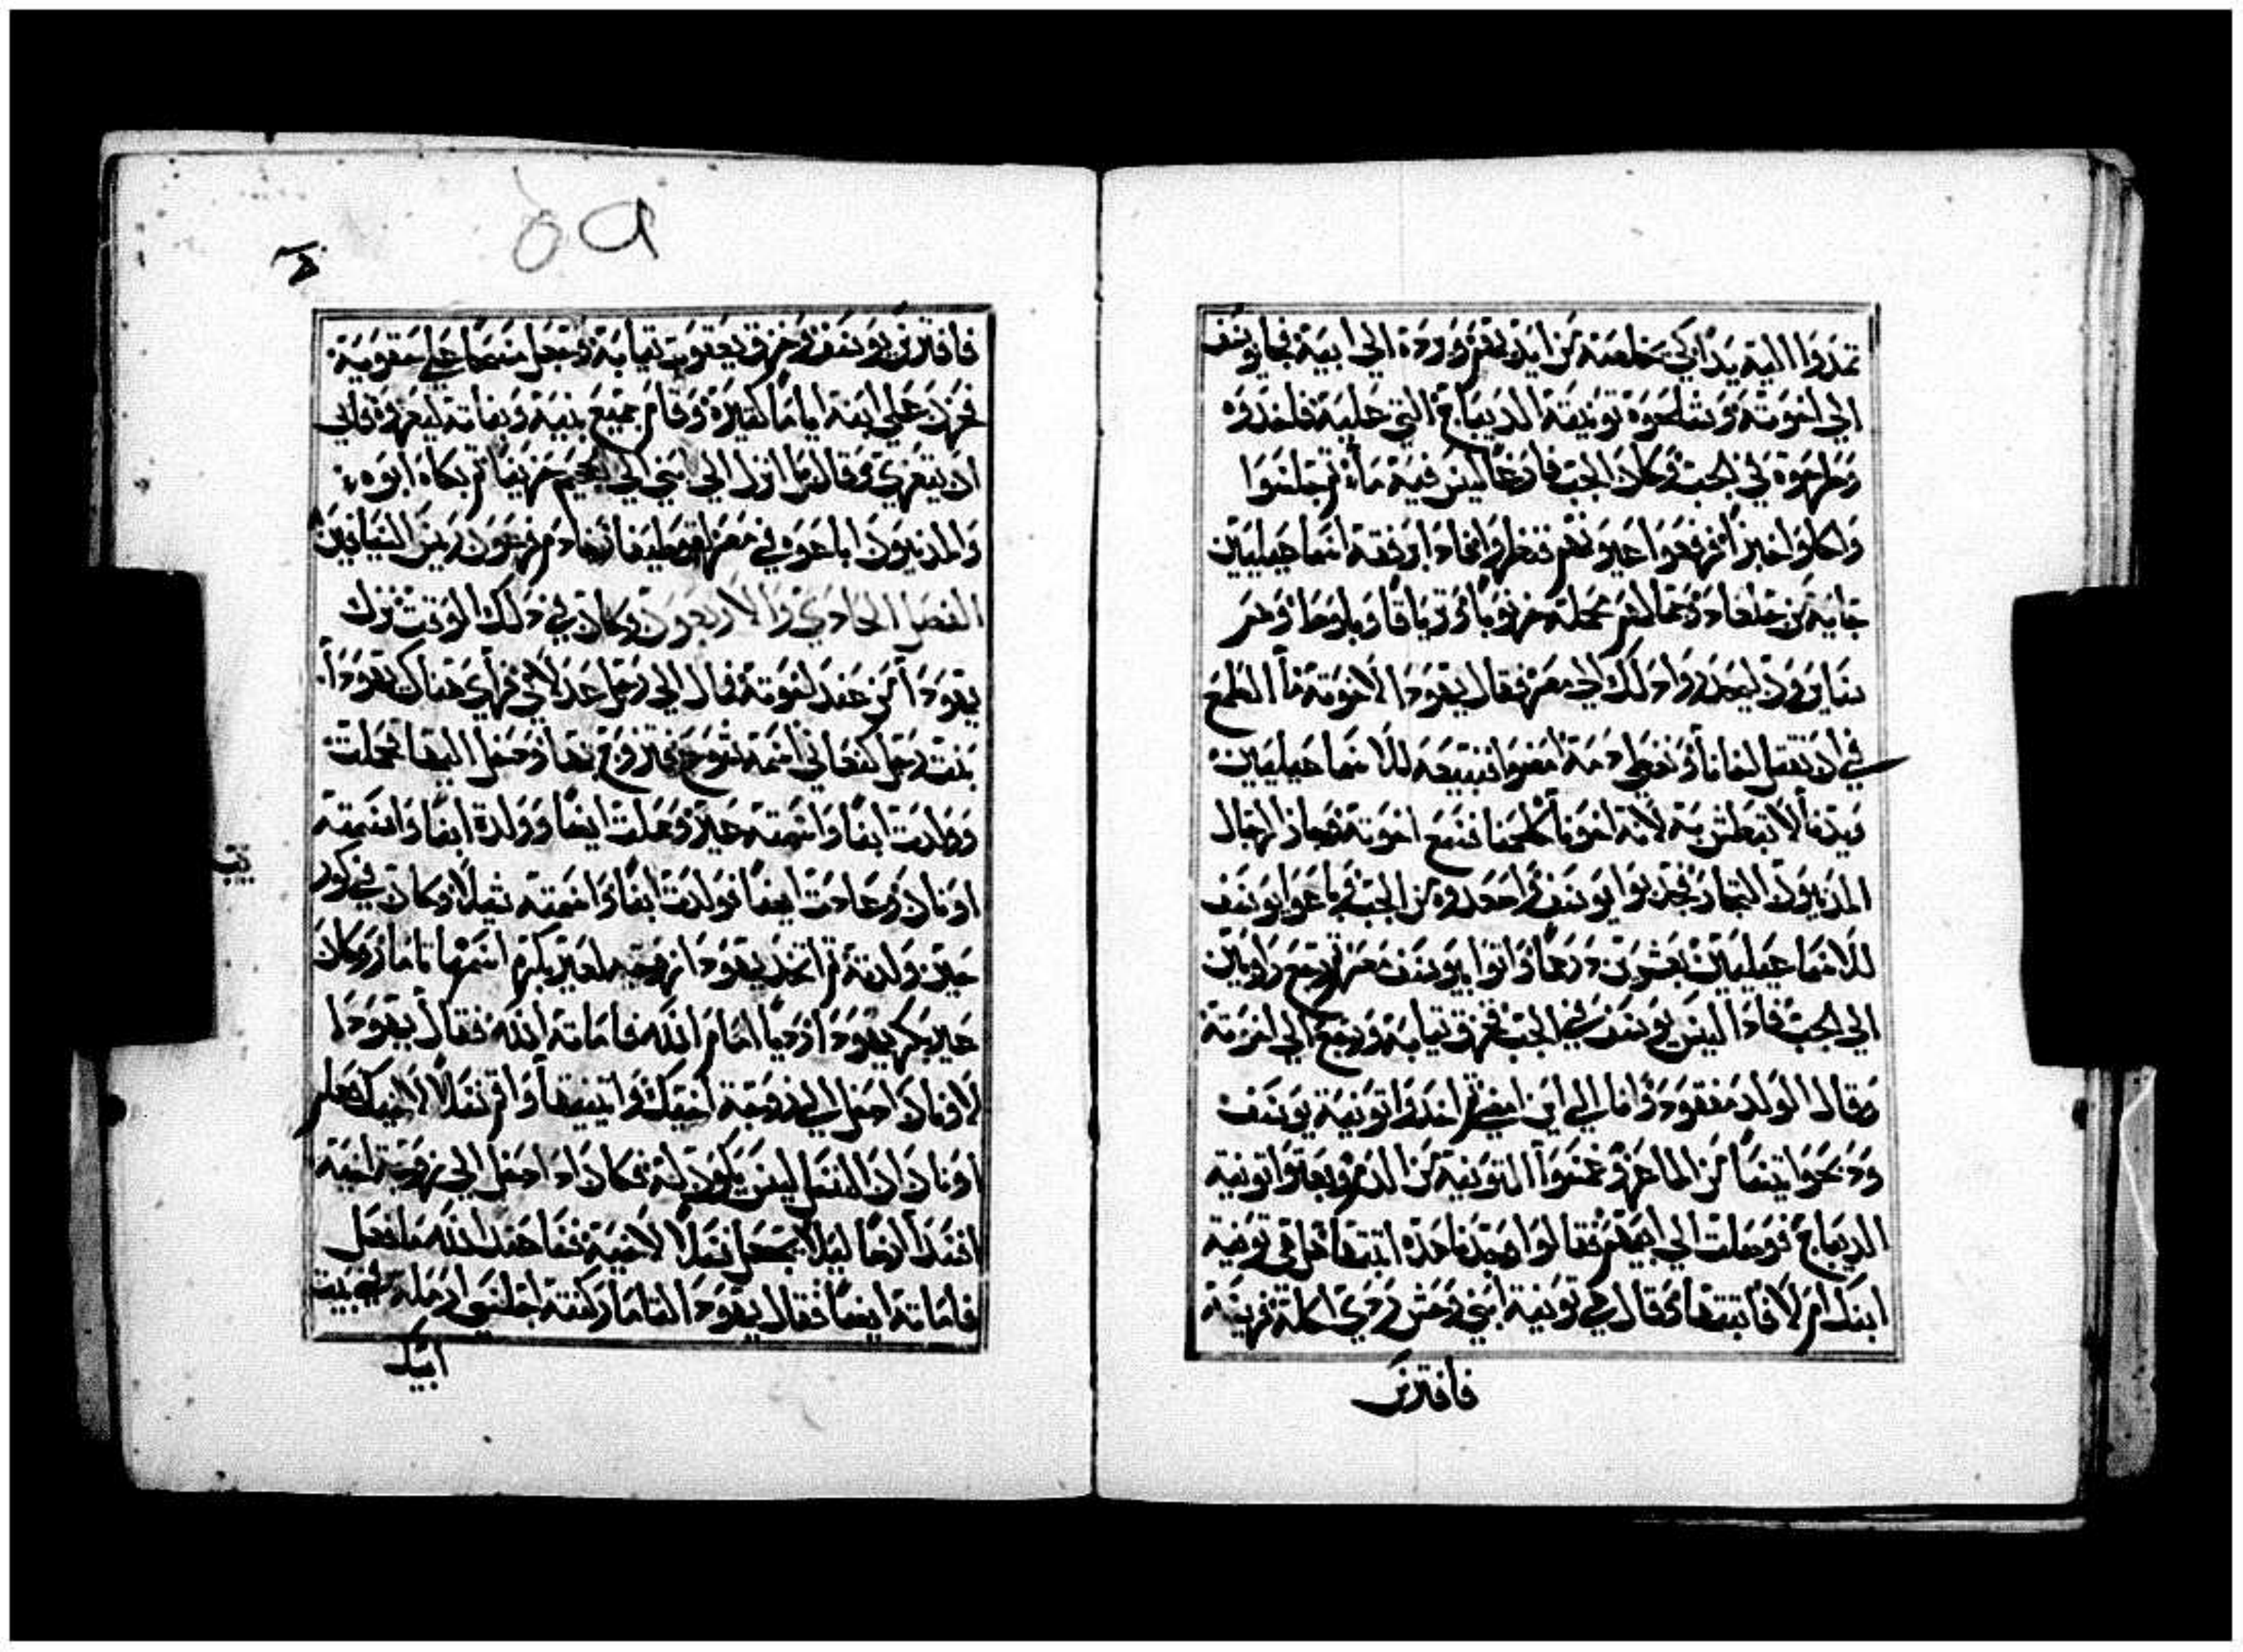 تمدوا اليه يدا لكي يخلصه من ايديهم ويرده الي ابيه فجا يوسف
الي اخوته وشلحوه تونيته الديباج التي عليه فاخدوه
وطرحوه في الجب وكان الجب فارغا ليس فيه مآء ثم جلسوا
واكلوا خبزا ثم رفعوا عيونهم فنظروا واذا رفقه اسماعيليين
جايه من جلعاد وجمالهم محمله خرنوبا وترياقا وبلوطا وهم
سايرون ليحدروا ذلك الي مصر فقال يهودا لاخوته ما الطمع
في ان نقتل اخانا ونخفي دمه امضوا نبيعه للاسماعيليين
ويدنا لا تبطش به لانه اخونا ولحمنا فسمع اخوته فجاز الرجال
المدنيون التجار فجدبوا يوسف واصعدوه من الجب فباعوا يوسف
للاسماعيليين بعشرين درهما واتوا بيوسف مصر ثم رجع راوبين
الي الجب فاذا ليس يوسف في الجب فخرق ثيابه ورجع الي اخوته
وقال الولد مفقود وانا الي اين امضي ثم اخدوا تونية يوسف
ودبحوا تيسا من الماعز وغمسوا التونية من الدم وبعثوا تونية
الديباج فوصلت الي ابيهم فقالوا وجدنا هذه اثبتها هل هي تونية
ابنك ام لا فاثبتها وقال هي تونية ابني وحش ردي اكله فريسة
فافترس
٥٩
فافترس يوسف وخرق يعقوب ثيابه وجعل مسحا علي حقويه
فحزن علي ابنه اياما كثيره وقام جميع بنيه وبناته ليعزوه فابي
ان يتعزي وقال انزل الي ابني الي الجحيم حزينا ثم بكاه ابوه
والمدنيون اباعوه في مصر لقوطيفار خادم فرعون ريس السيافين
الفصل الحادي والاربعون وكان في ذلك الوقت نزل
يهودا من عند اخوته فمال الي رجل عدلامي فراي هناك يهودا
بنت رجل كنعاني اسمه شوع فتزوج بها ودخل اليها فحملت
وولدت ابنا واسمته عير وحملت ايضا وولدة ابنا واسمته
اونان وعادت ايضا فولدت ابنا واسمته شيلا وكان في
حين ولدته ثم اتخد يهودا زوجه لعير بكره اسمها تامار وكان
عير بكر يهودا رديا امام الله فاماته الله فقال يهودا
لاونان ادخل الي زوجة اخيك واقم نسلا لاخيك فعلم
اونان ان النسل ليس يكون له فكان اذا دخل الي زوجة اخيه
افسد ارضا ليلا يجعل نسلا لاخيه فسا عند الله ما فعل
فاماته ايضا فقال يهودا لتامار كنته اجلسي ارمله في بيت
ابيك